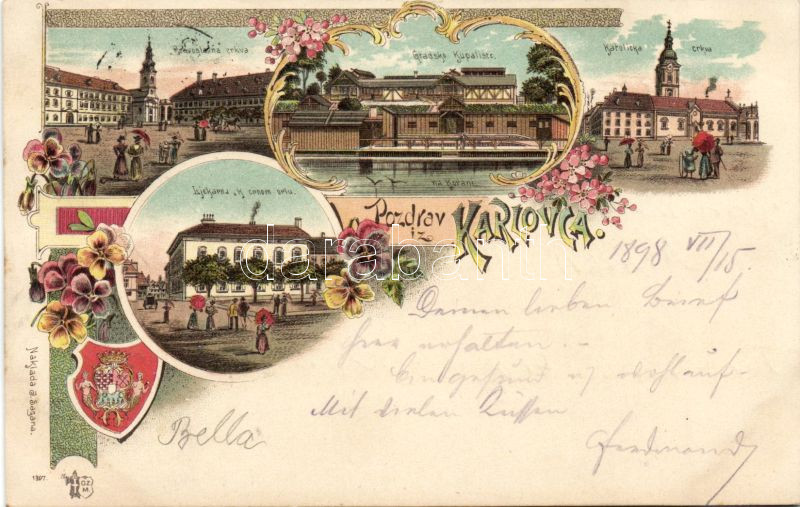 Pravoslavna crkva
Gradsko Kupalište.
Katolička crkva
na Korani
Ljekarna „K crnom orlu.
Pozdrav
iz
KARLOVCA.
1898 VII/15
Deinen lieben Brief
hier erhalten. –
Bin gesund u/ wohlauf –
Mit vielen Küssen
Ferdinand
Bella
Naklada
1397
darabanth